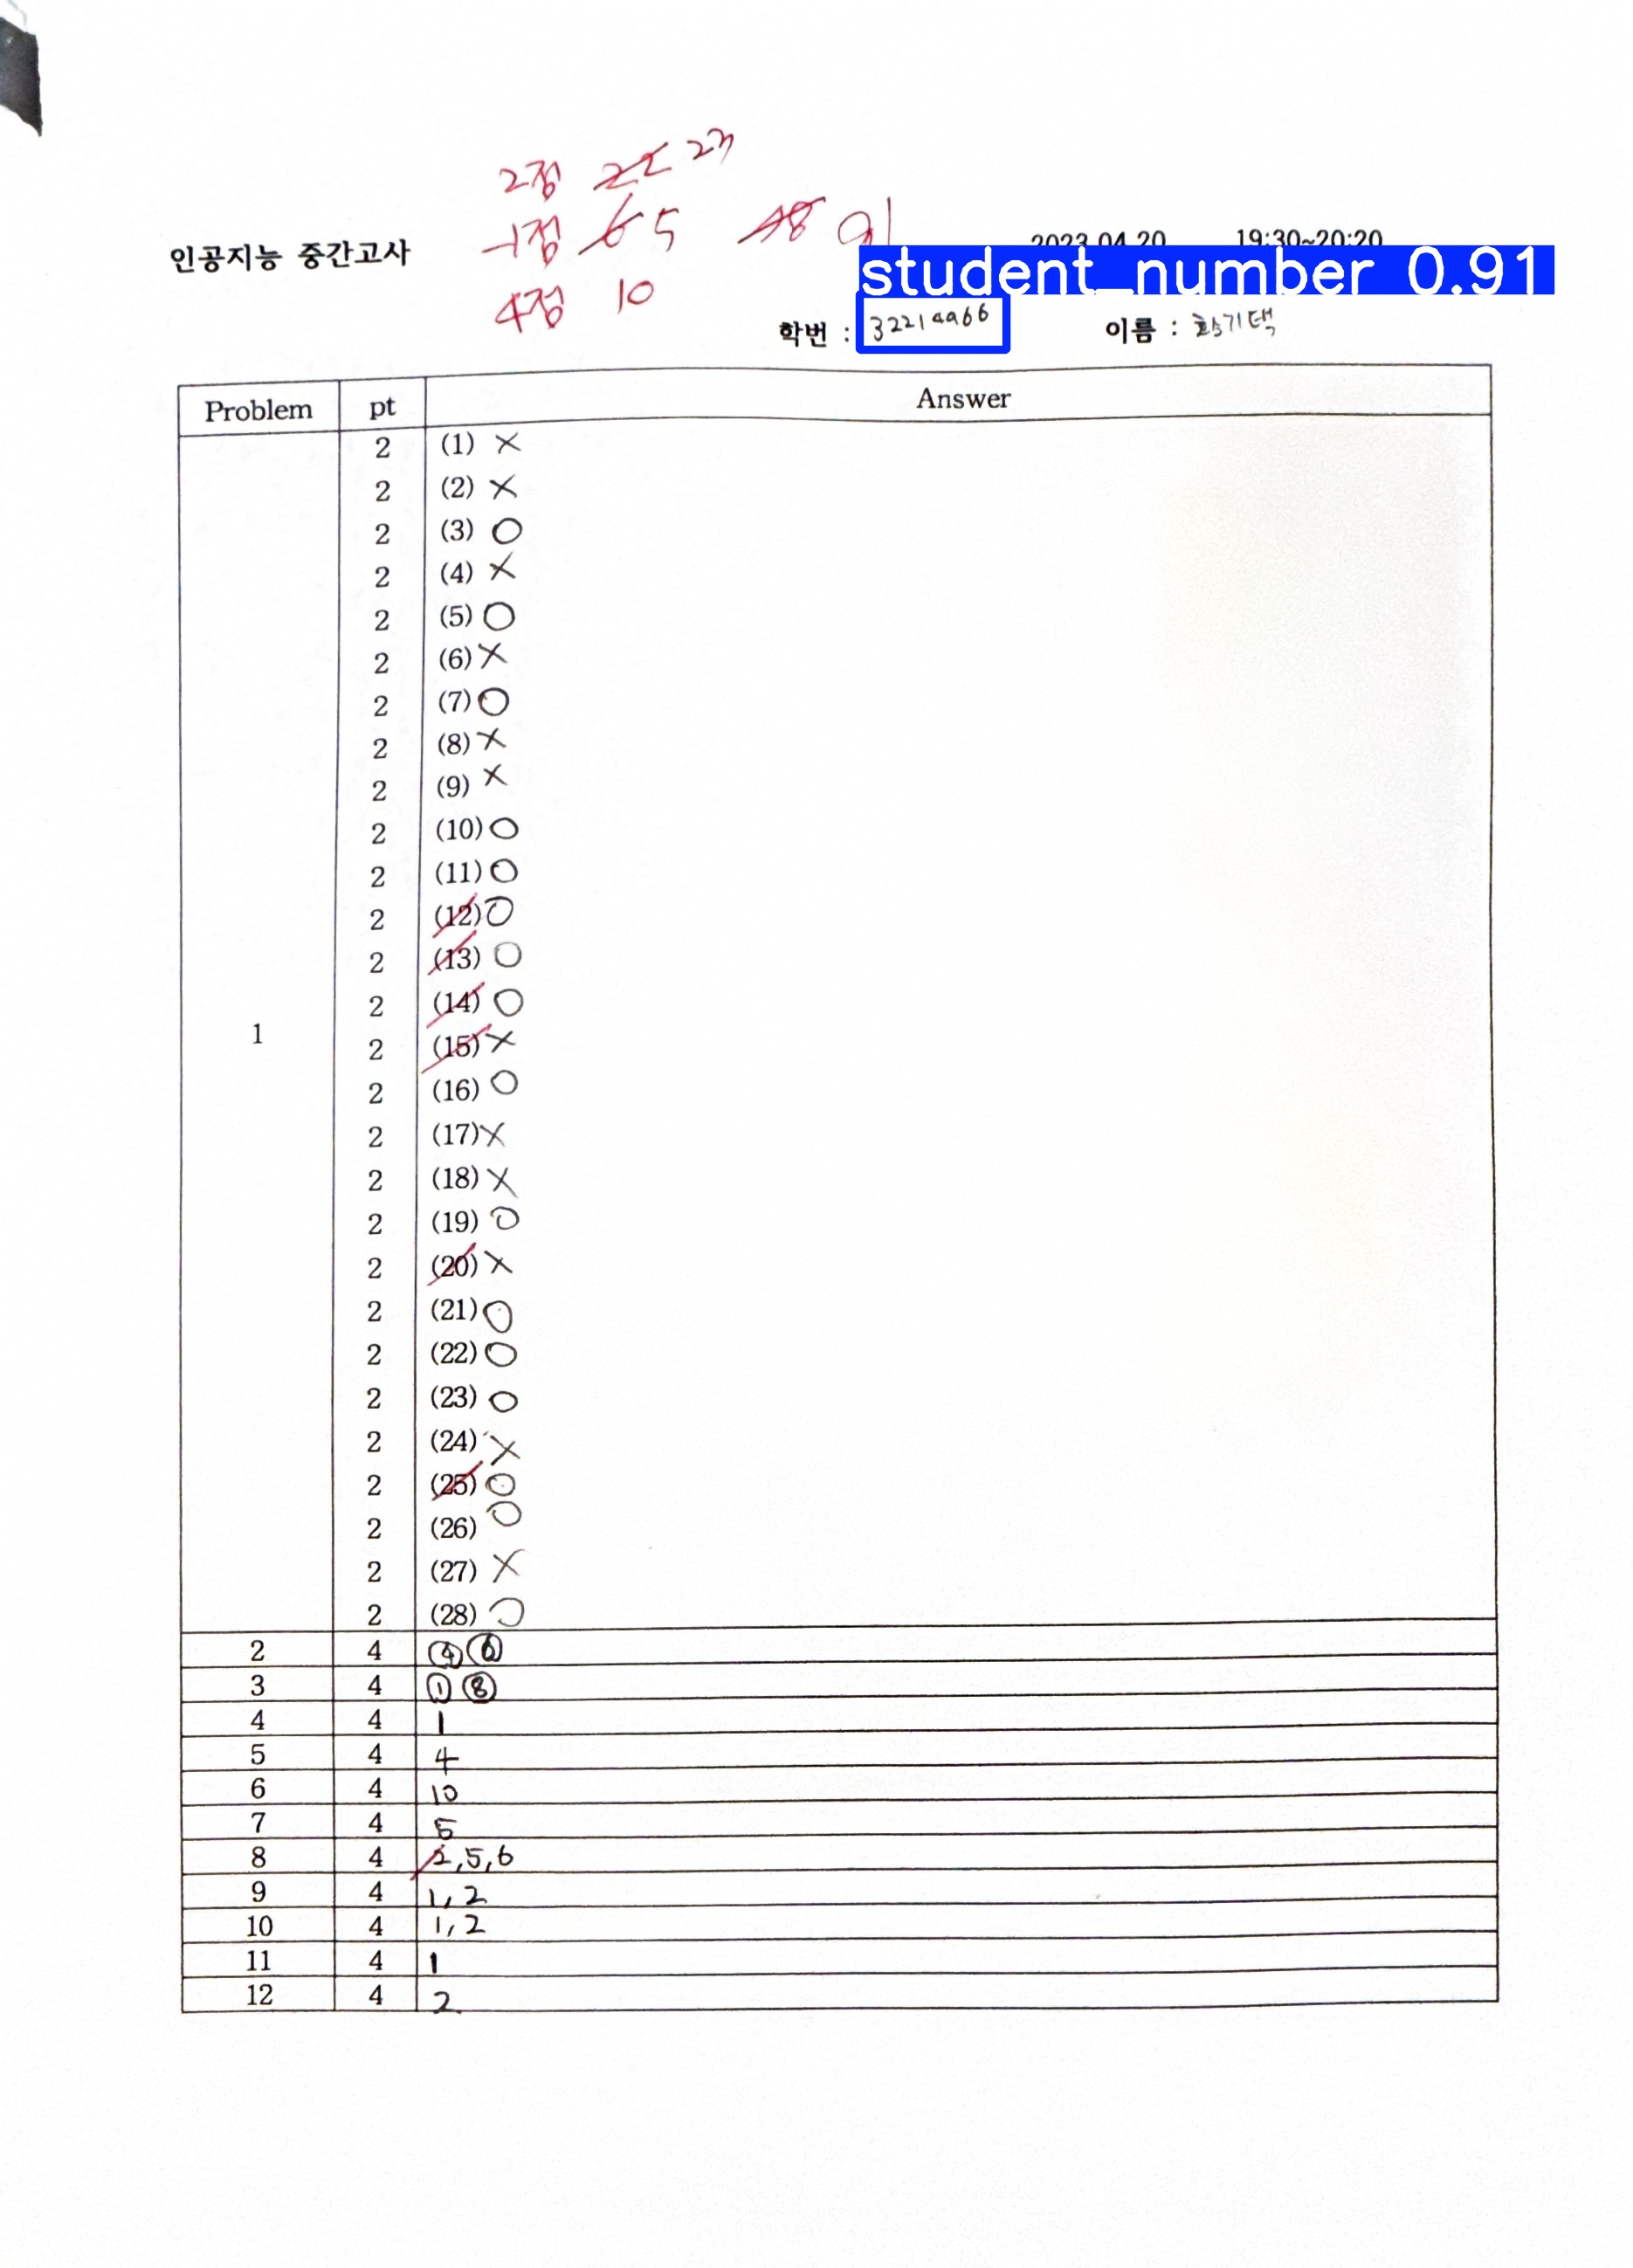 2점 22 23
-1점 6 5 48 91
4점 10
인공지능 중간고사
2023.04.20 19:30~20:20
student_number 0.91
학번 : 32214966 이름 : 황기택
Problem pt Answer
2 (1) X
2 (2) X
2 (3) O
2 (4) X
2 (5) O
2 (6) X
2 (7) O
2 (8) X
2 (9) X
2 (10) O
2 (11) O
2 (12) O
2 (13) O
2 (14) O
1 2 (15) X
2 (16) O
2 (17) X
2 (18) X
2 (19) O
2 (20) X
2 (21) O
2 (22) O
2 (23) O
2 (24) X
2 (25) O
2 (26) O
2 (27) X
2 (28) O
2 4 ④ ⑥
3 4 ① ⑧
4 4 1
5 4 4
6 4 10
7 4 5
8 4 2,5,6
9 4 1,2
10 4 1,2
11 4 1
12 4 2